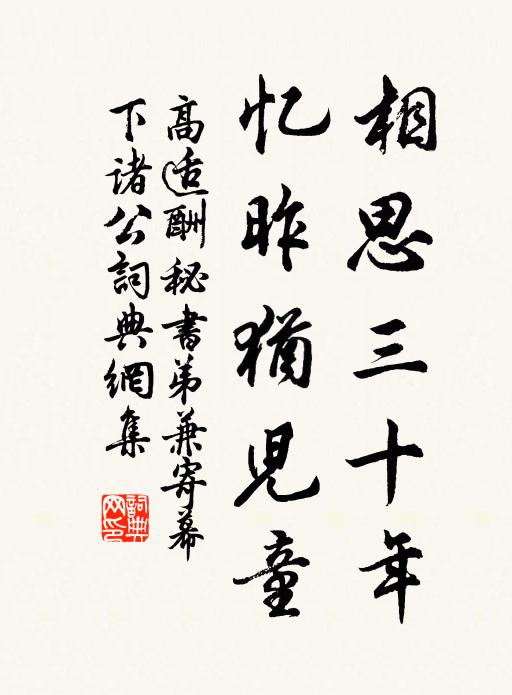 相思三十年
忆昨猶児童
高适酬秘書弟兼寄幕
下诸公詞典網集
詞典网印